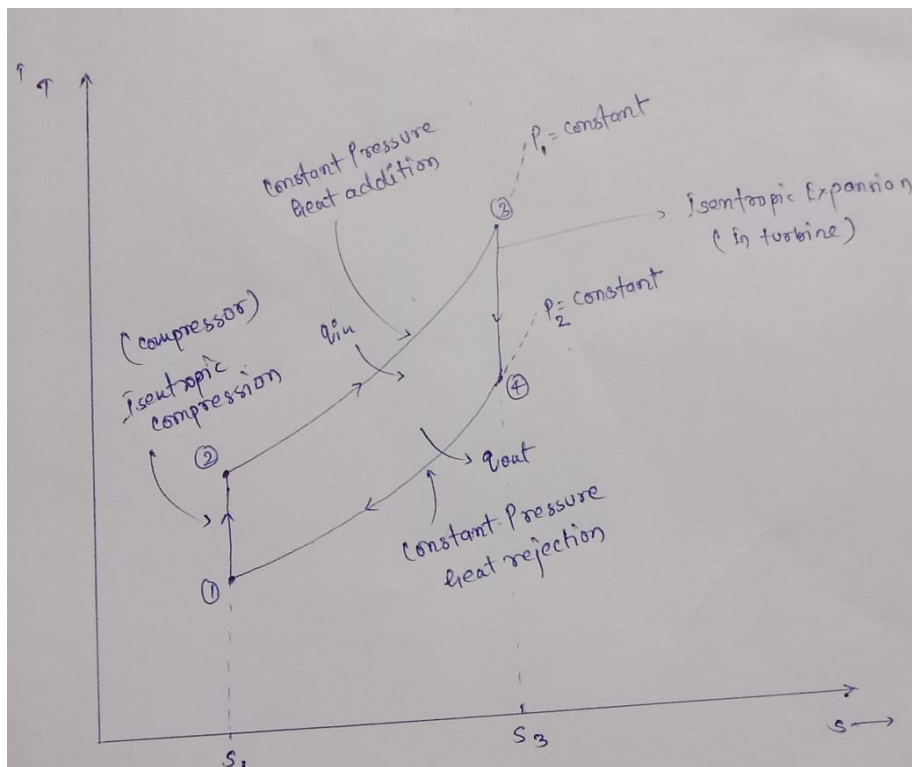 ↑
T
constant Pressure
heat addition
P₁ = constant
③
Isentropic Expansion
(in turbine)
P₂ = constant
(compressor)
Isentropic
compression
qin
④
②
qout
constant Pressure
heat rejection
①
S₁
S₃
S →